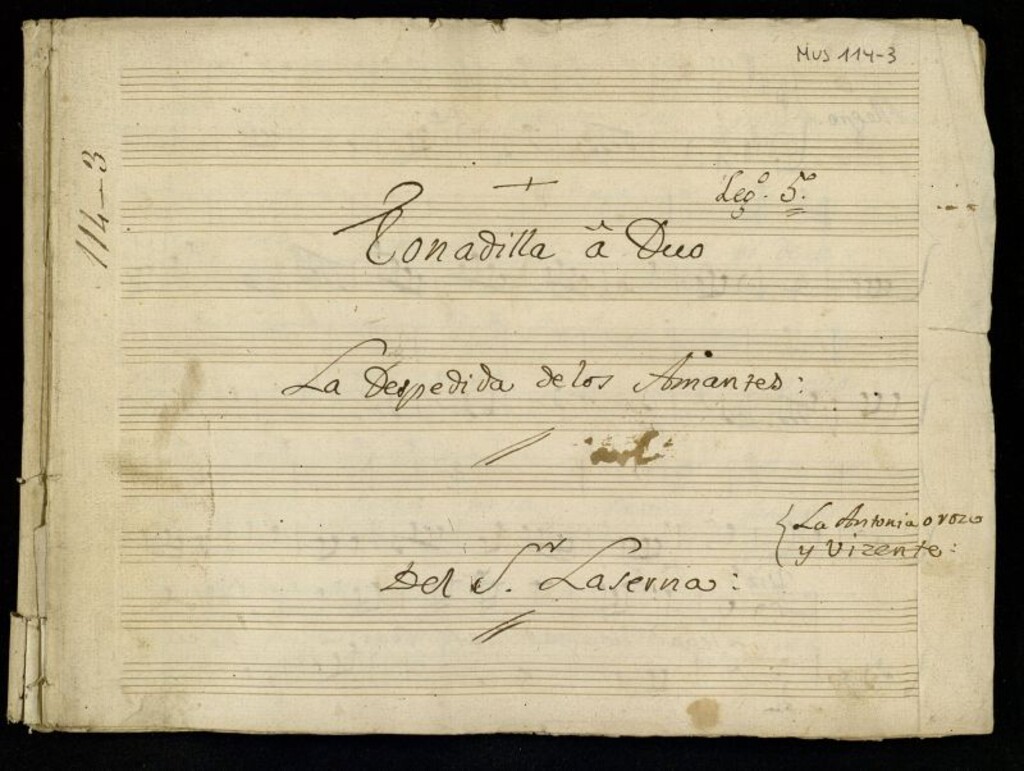 Mus 114-3
114-3
Leg.º 5.º
Tonadilla â Duo
La Despedida de los Amantes:
La Antonia orozco
y Vizente:
Del S.r Laserna: